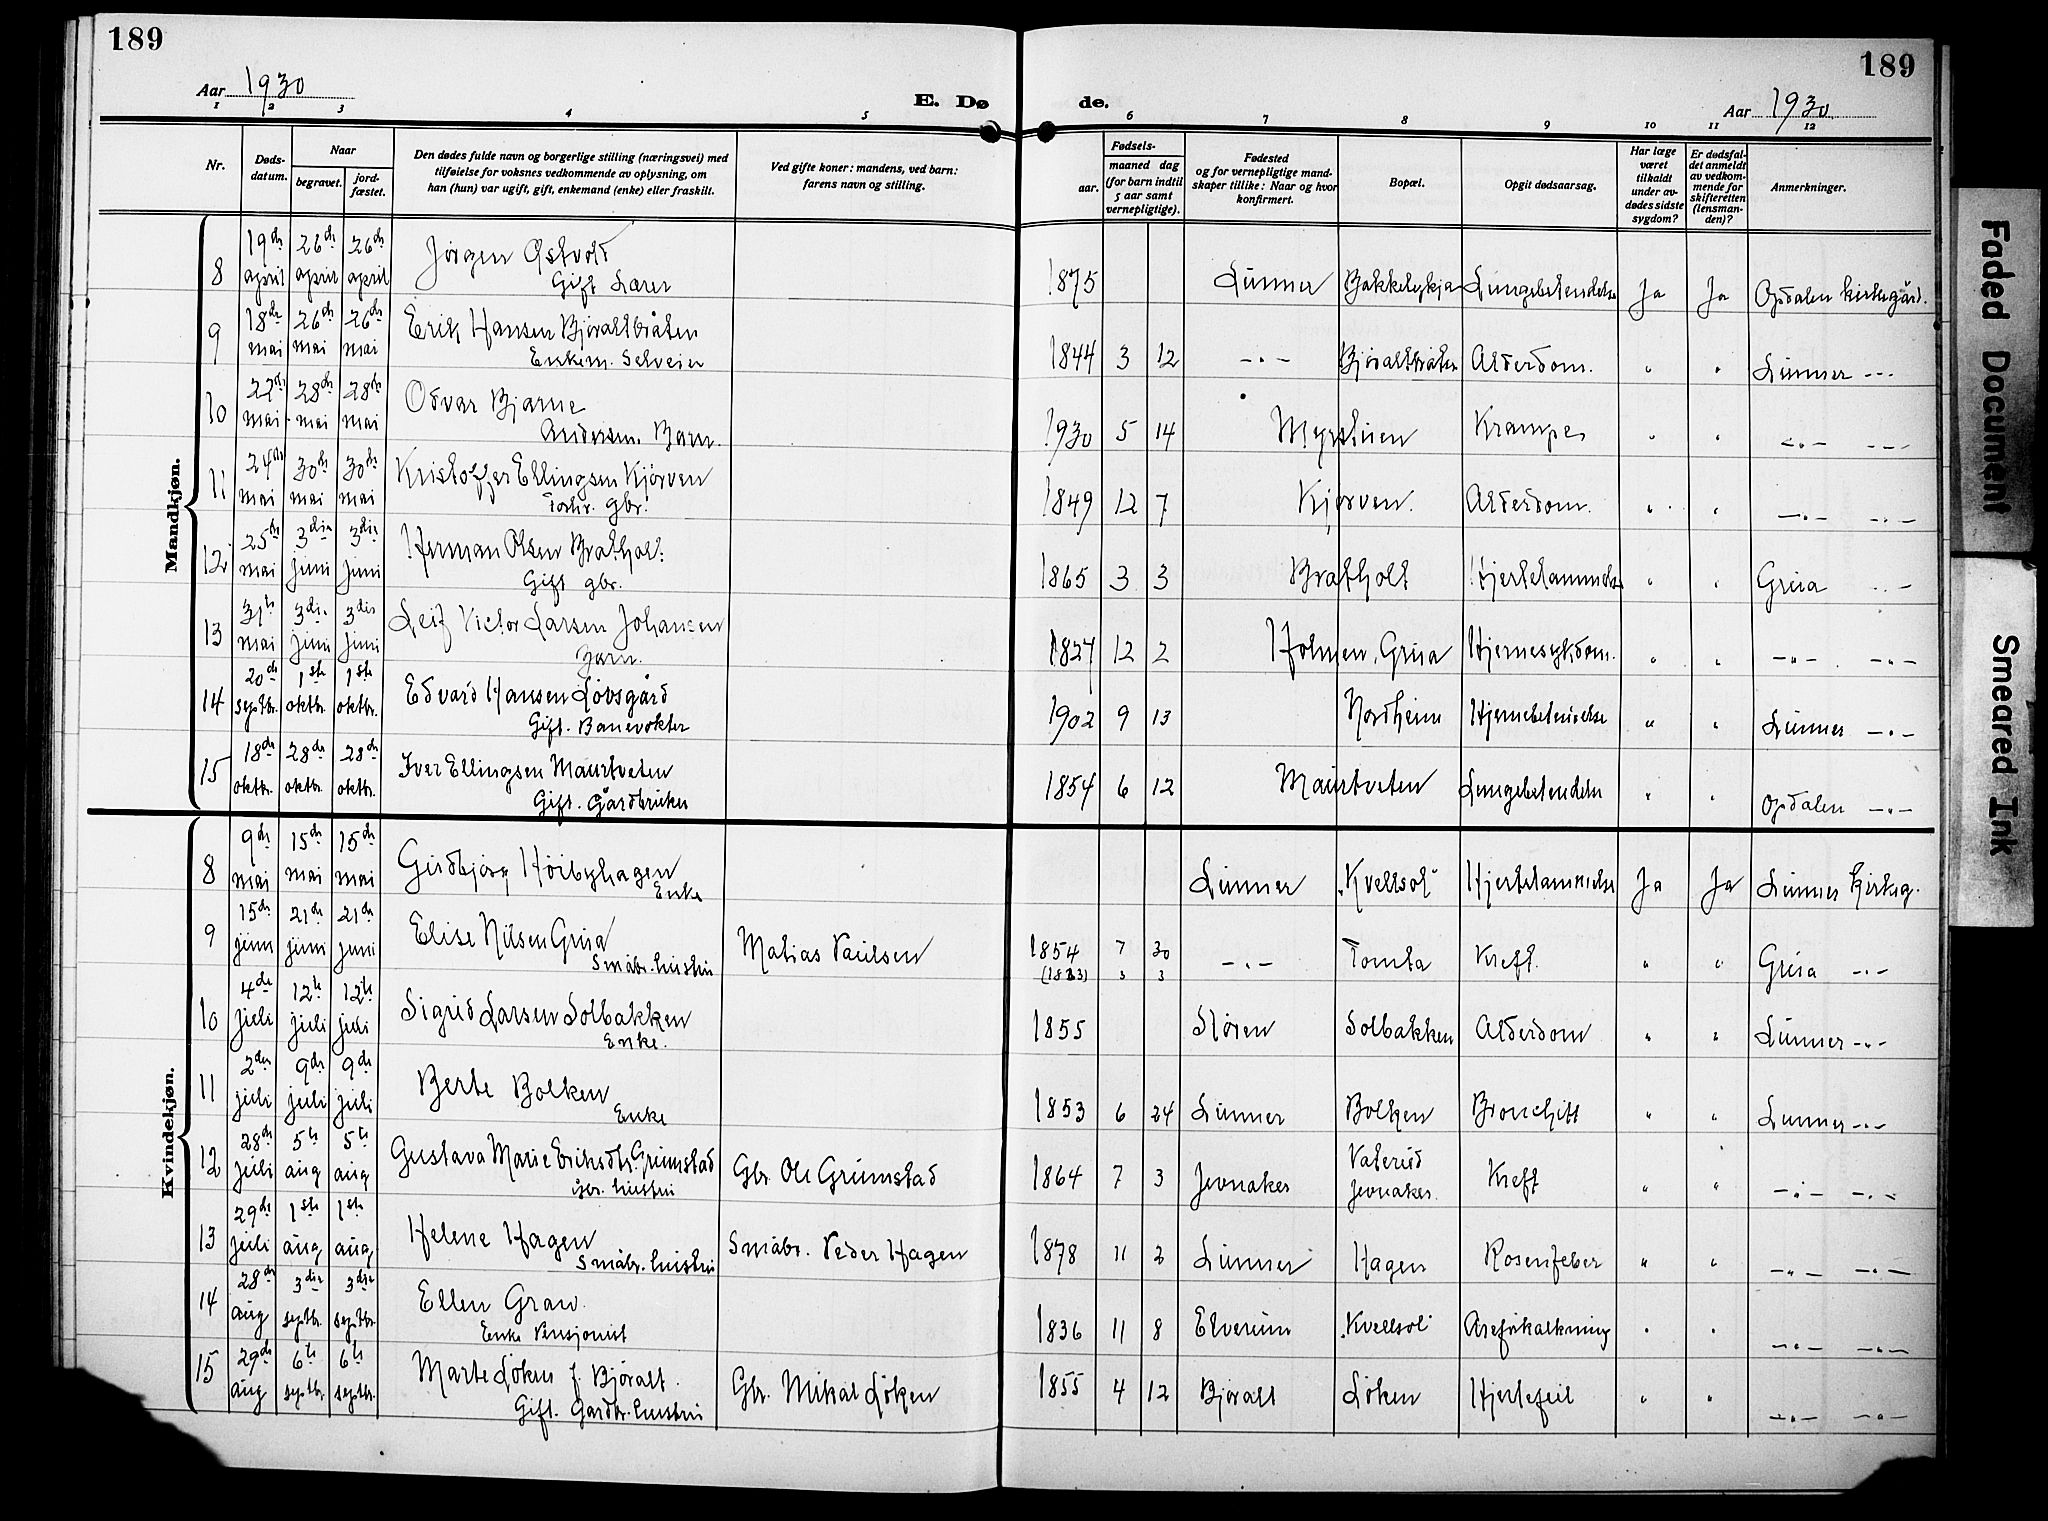 189
189
Aar 1930
E. Dø
de.
Aar 1930
1 2 3 4 5 6 7 8 9 10 11 12
Nr.
Døds-
datum.
Naar
begravet.
jord-
fæstet.
Den dødes fulde navn og borgerlige stilling (næringsvei) med
tilføielse for voksnes vedkommende av oplysning, om
han (hun) var ugift, gift, enkemand (enke) eller fraskilt.
Ved gifte koner: mandens, ved barn:
farens navn og stilling.
Fødsels-
aar.
maaned dag
(for barn indtil
5 aar samt
vernepligtige).
Fødested
og for vernepligtige mand-
skaper tillike: Naar og hvor
konfirmert.
Bopæl.
Opgit dødsaarsag.
Har læge
været
tilkaldt
under av-
dødes sidste
sygdom?
Er dødsfal-
det anmeldt
av vedkom-
mende for
skifteretten
(lensman-
den)?
Anmerkninger.
Mandkjøn.
8 19de april 26de april 26de april Jørgen Østvold
Gift Lærer
1875 Lunner Lungebetendelse Ja Ja Opdalen kirkegård.
9 18de mai 26de mai 26de mai Erik Hansen Bjøraltbråten
Enkem. Selveier
1844 3 12 -"- Bjøraltbråten Alderdom. " " Lunner -"-
10 22de mai 28de mai 28de mai Odvar Bjarne
Andersen. Barn.
1930 5 14 Myrstuen Krampe " " -"- -"-
11 24de mai 30de mai 30de mai Kristoffer Ellingsen Kjørven
Forhv. gbr.
1849 12 7 Kjørven. Alderdom. " " -"- -"-
12 25de mai 3die juni 3die juni Herman Olsen Bratholt
Gift gbr.
1865 3 3 Bratholt Hjertelammelse " " Grua -"-
13 31te mai 3die juni 3die juni Leif Victor Larsen Johansen
Barn.
1827 12 2 Holmen, Grua Hjernesykdom. " " -"- -"-
14 20de septbr. 1ste oktbr. 1ste oktbr. Edvard Hansen Løvsgård
Gift. Banevokter
1902 9 13 Nordheim Hjernebetendelse " " Lunner -"-
15 18de oktbr. 28de oktbr. 28de oktbr. Iver Ellingsen Maurtveten
Gift. Gårdbruker
1854 6 12 Maurtveten Lungebetendelse " " Opdalen -"-
Kvindekjøn.
8 9de mai 15de mai 15de mai Gudbjørg Høibyhagen
Enke
Lunner "Kveltsol" Hjertelammelse Ja Ja Lunner kirkeg.
9 15de juni 21de juni 21de juni Elise Nilsen Grua
Småbr. hustru
Matias Paulsen 1854 7 30 -"- Tomta Kreft. " " Grua -"-
3 3
10 4de juli 12te juli 12te juli Sigrid Larsen Solbakken
Enke.
1855 Støren Solbakken Alderdom " " Lunner -"-
11 2den juli 9de juli 9de juli Berte Bolken
Enke
1853 6 24 Lunner Bolken Bronchitt " " Lunner -"-
12 28de juli 5te aug 5te aug Gustava Marie Eriksdtr. Grimstad
gbr. hustru
Gbr. Ole Grimstad 1864 7 3 Jevnaker Jevnaker. Kreft " " -"- -"-
13 29de juli 1ste aug 1ste aug Helene Hagen
Småbr. hustru
Småbr. Peder Hagen 1878 11 2 Lunner Hagen Rosenfeber " " -"- -"-
14 28de aug 3die septbr. 3die septbr. Ellen Graw.
Enke Pensjonist
1836 11 8 Elverum "Kveltsol" Åreforkalkning " " -"- -"-
15 29de aug 6te septbr. 6te septbr. Marte Løken f. Bjøralt.
Gift. Gardbr. hustru
Gbr. Mikal Løken 1855 4 12 Bjøralt Løken Hjertefeil " " -"- -"-
Faded Document
Smeared Ink